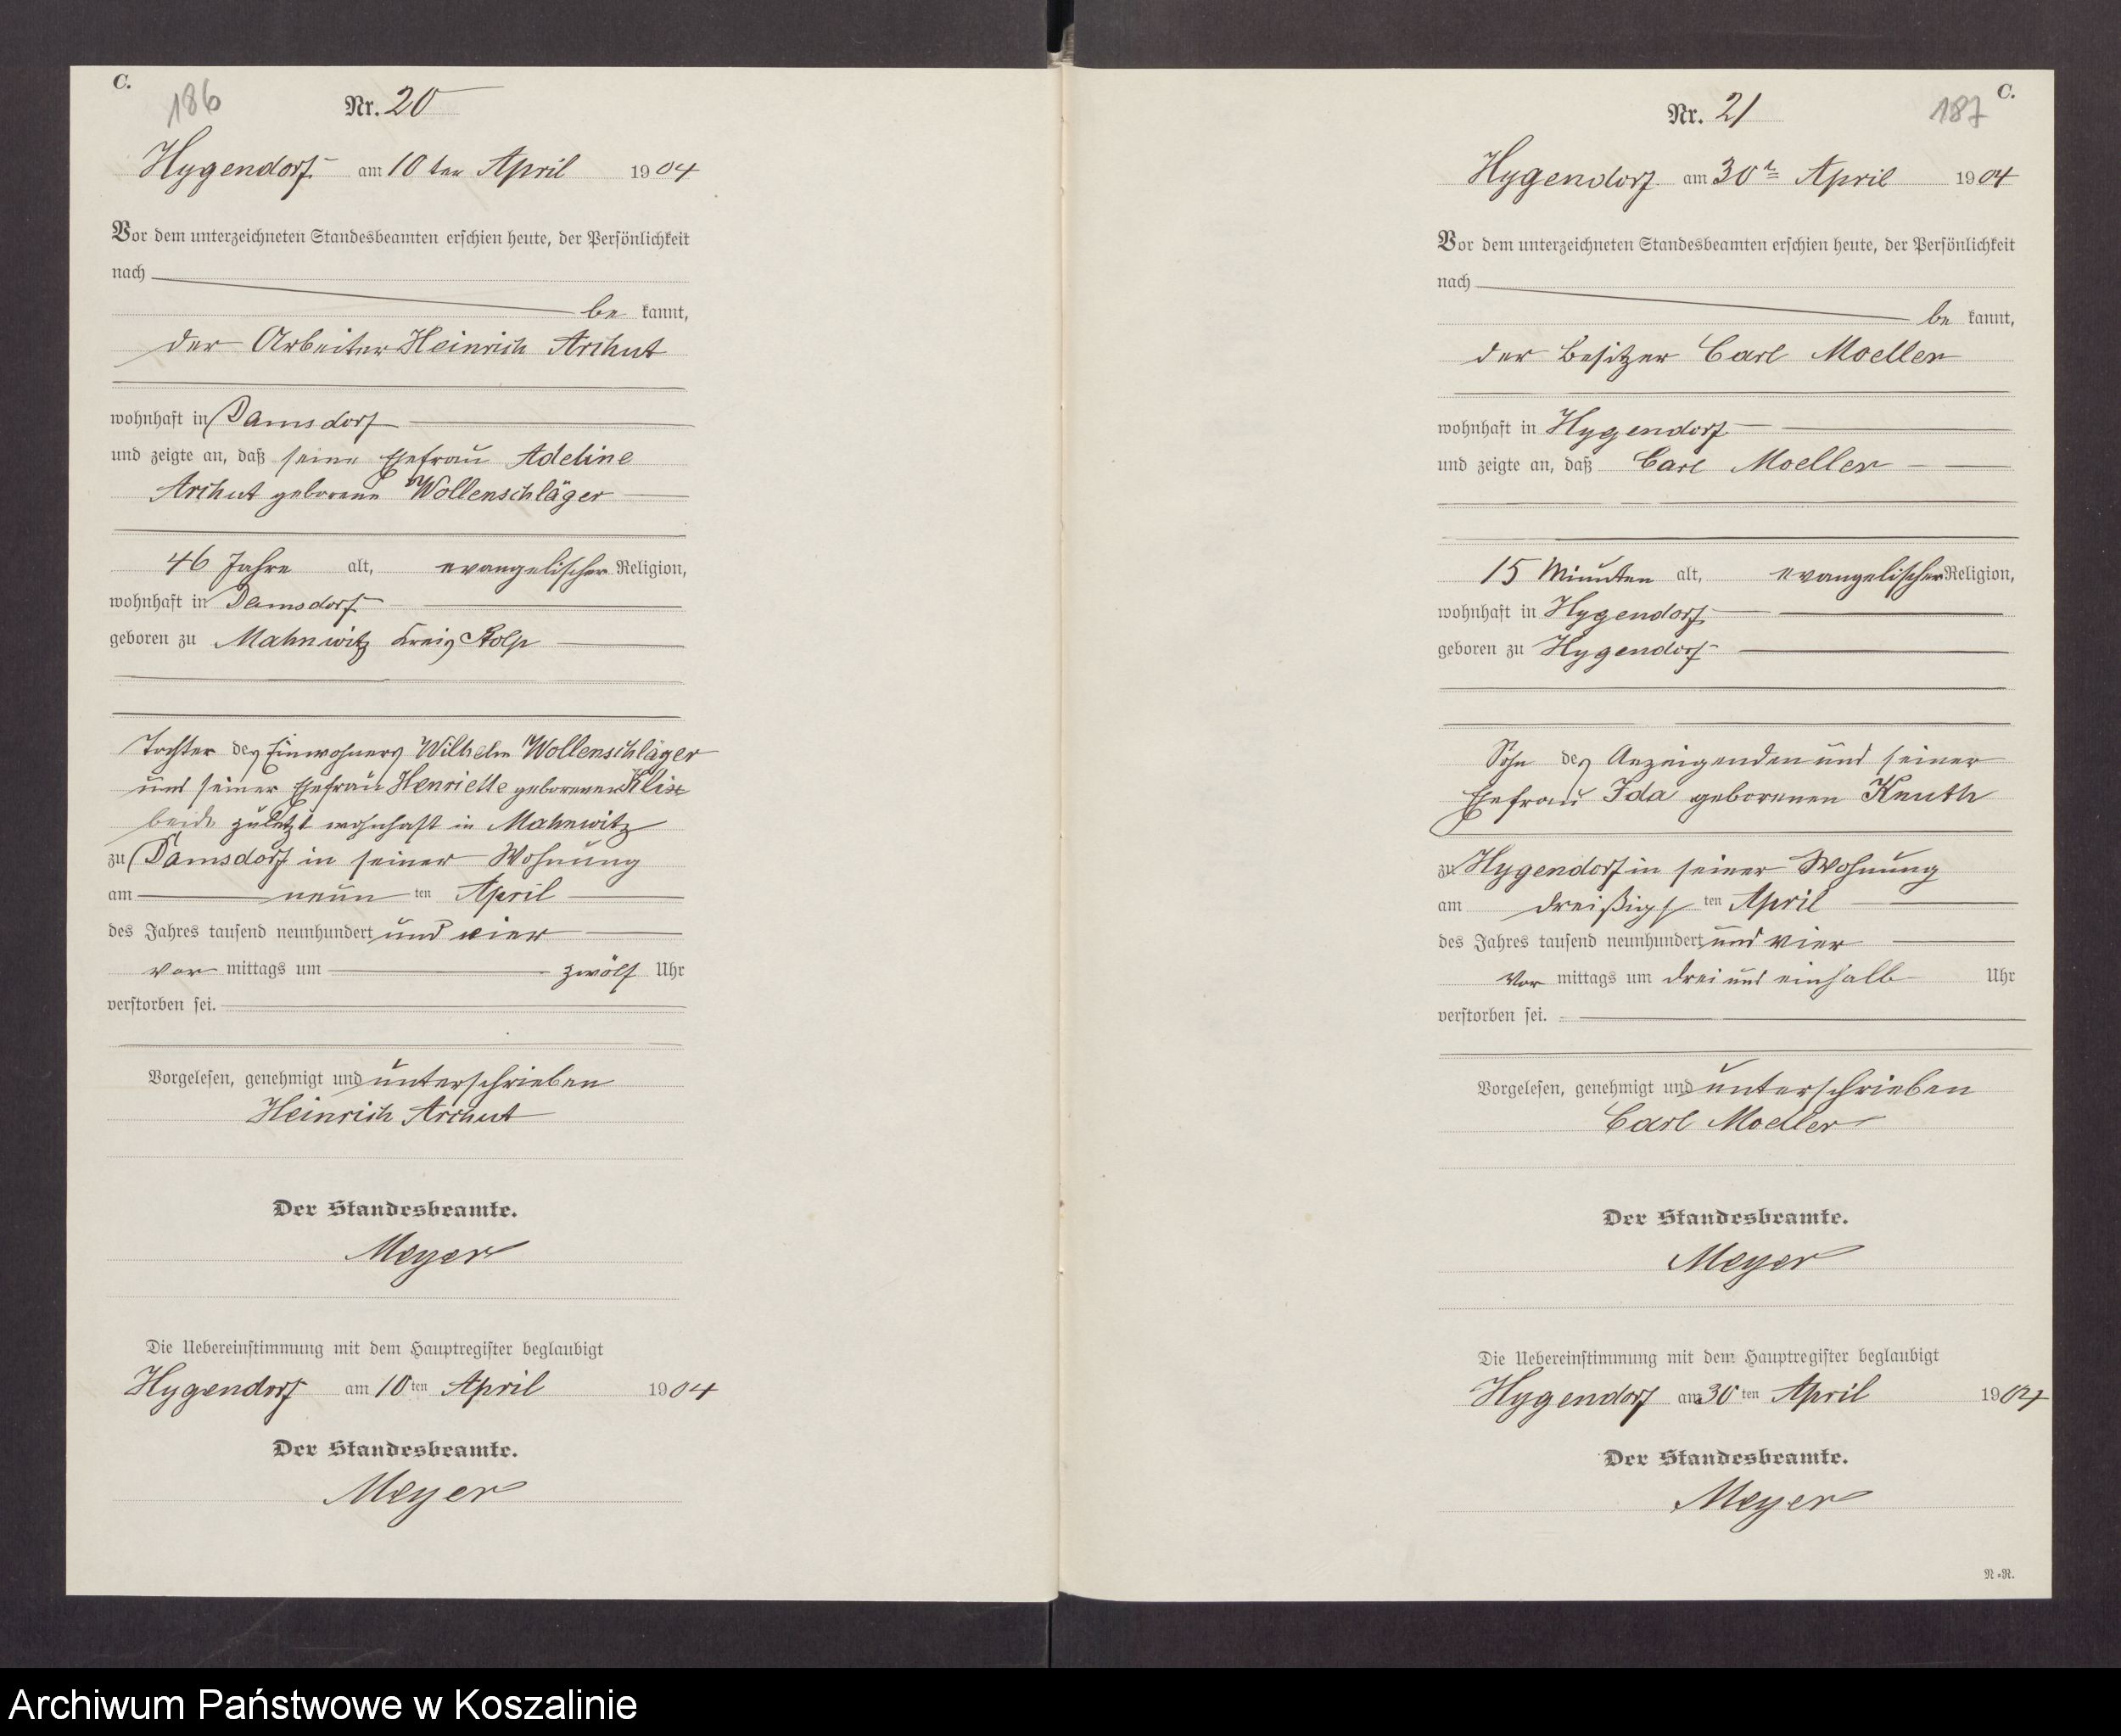 C.
186
Nr. 20
Hygendorf am 10ten April 1904
Vor dem unterzeichneten Standesbeamten erschien heute, der Persönlichkeit
nach
be kannt,
der Arbeiter Heinrich Archut
wohnhaft in Damsdorf
und zeigte an, daß seine Ehefrau Adeline
Archut geborene Wollenschläger
46 Jahre alt, evangelischer Religion,
wohnhaft in Damsdorf
geboren zu Mahnwitz Kreis Stolp
Tochter des Einwohners Wilhelm Wollenschläger
und seiner Ehefrau Henriette geborenen Klix
beide zuletzt wohnhaft in Mahnwitz
zu Damsdorf in seiner Wohnung
am neun ten April
des Jahres tausend neunhundert und vier
vor mittags um zwölf Uhr
verstorben sei.
Vorgelesen, genehmigt und unterschrieben
Heinrich Archut
Der Standesbeamte.
Meyer
Die Uebereinstimmung mit dem Hauptregister beglaubigt
Hygendorf am 10ten April 1904
Der Standesbeamte.
Meyer
C.
187
Nr. 21
Hygendorf am 30n April 1904
Vor dem unterzeichneten Standesbeamten erschien heute, der Persönlichkeit
nach
be kannt,
der Besitzer Carl Moeller
wohnhaft in Hygendorf
und zeigte an, daß Carl Moeller
15 Minuten alt, evangelischer Religion,
wohnhaft in Hygendorf
geboren zu Hygendorf
Sohn des Anzeigenden und seiner
Ehefrau Ida geborenen Knuth
zu Hygendorf in seiner Wohnung
am dreißigs ten April
des Jahres tausend neunhundert und vier
Vor mittags um drei und einhalb Uhr
verstorben sei.
Vorgelesen, genehmigt und unterschrieben
Carl Moeller
Der Standesbeamte.
Meyer
Die Uebereinstimmung mit dem Hauptregister beglaubigt
Hygendorf am 30ten April 1904
Der Standesbeamte.
Meyer
N.=N.
Archiwum Państwowe w Koszalinie